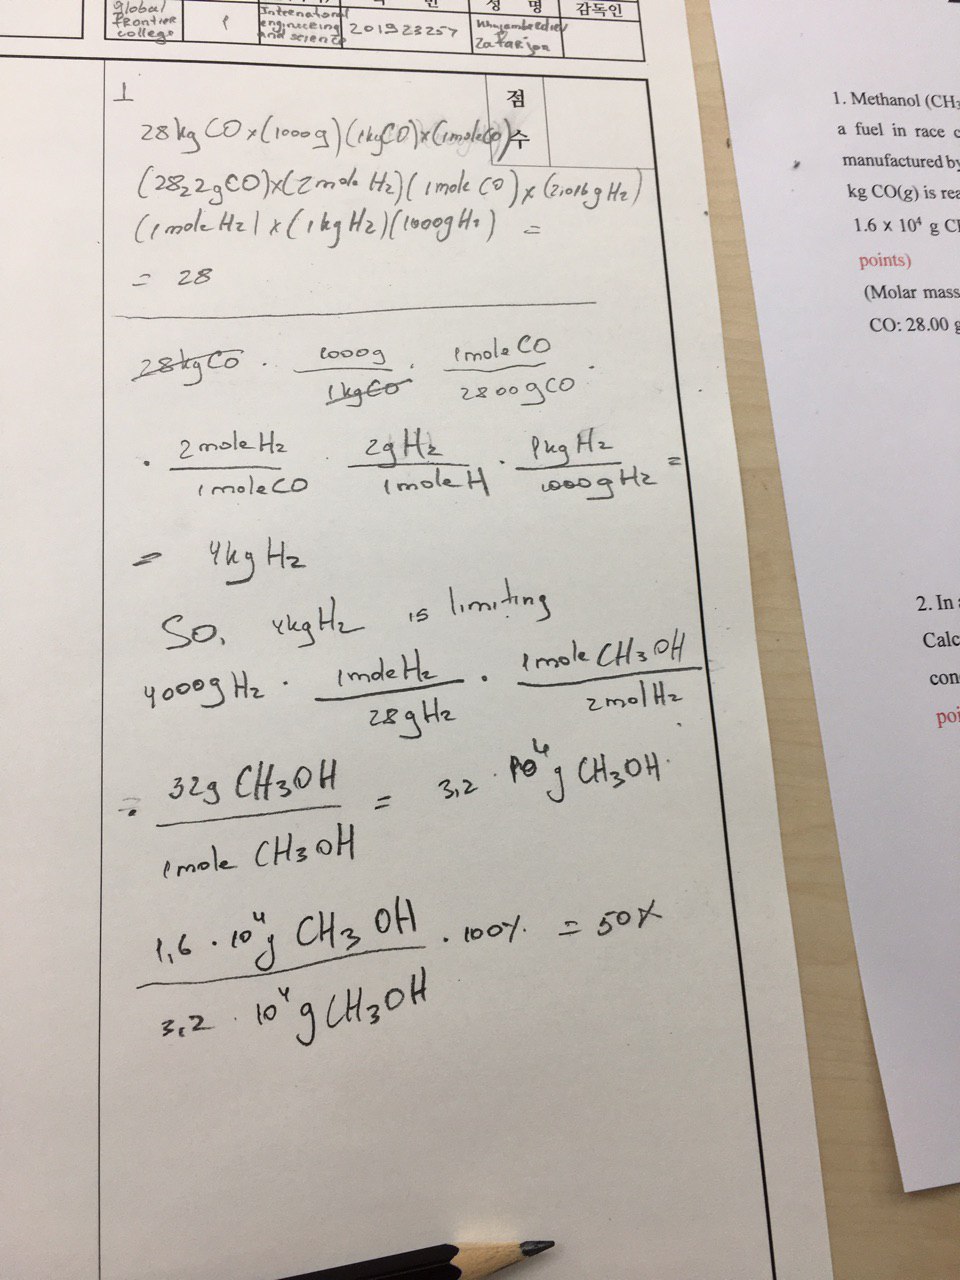 global
Frontier
college
1
Internatonal
engineering
and science
201923257
성 명
Zafarjon
감독인
점
수
1
28kg CO×(1000g)(1kgCO)×(1moleCO)
(28,2gCO)×(2mole H2)(1mole CO)×(2,016gH2)
(1moleH2)×(1kgH2)(1000gH2) =
= 28
28kgCO · 1000g · 1moleCO ·
1kgCO 2800gCO
· 2moleH2 · 2gH2 · 1kgH2 =
1moleCO 1moleH 1000gH2
= 4kgH2
So, 4kgH2 is limiting
4000gH2 · 1moleH2 · 1mole CH3OH
28gH2 2molH2
= 32g CH3OH = 3,2 · 10⁴g CH3OH
1mole CH3OH
1,6 · 10⁴g CH3OH · 100% = 50%
3,2 · 10⁴g CH3OH
1. Methanol (CH3
a fuel in race c
manufactured by
kg CO(g) is rea
1.6 x 10⁴ g CH
points)
(Molar mass
CO: 28.00 g
2. In a
Calc
con
poi